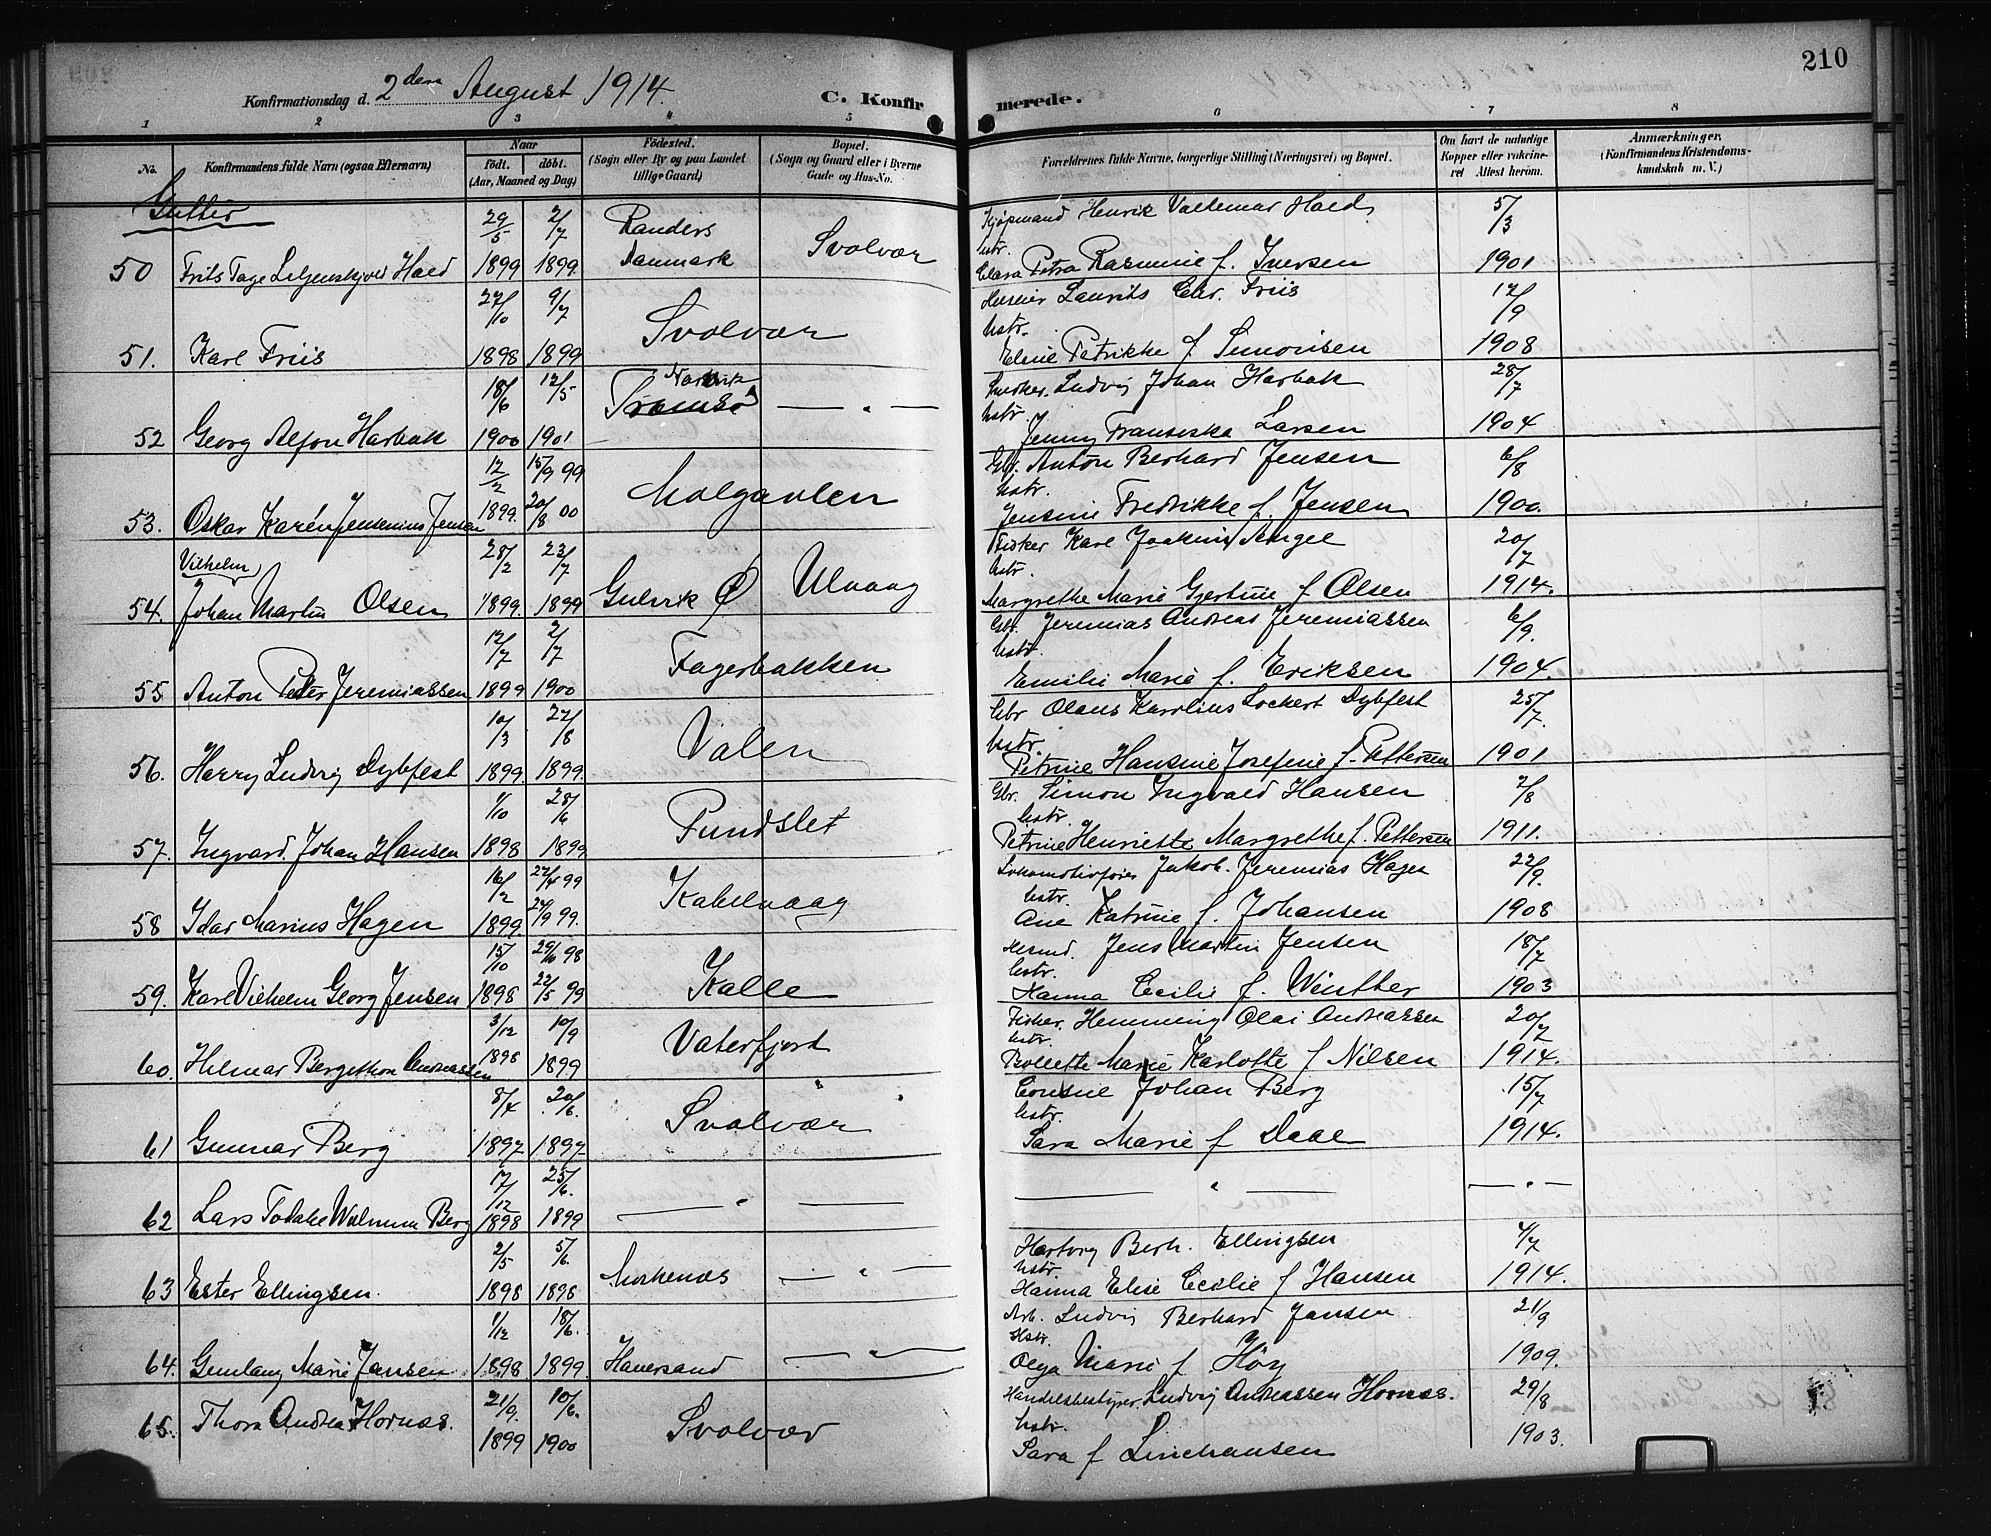 210
Konfirmationsdag d. 2den August 1914. C. Konfirmerede.
1 2 3 4 5 6 7 8
No. Konfirmandens fulde Navn (ogsaa Efternavn) Naar födt. döbt. (Aar, Maaned og Dag) Födested. (Sogn eller By og paa Landet tillige Gaard) Bopæl. (Sogn og Gaard eller i Byerne Gade og Hus-No. Forældrenes fulde Navne, borgerlige Stilling (Næringsvei) og Bopæl. Om havt de naturlige Kopper eller vakcineret. Attest herom. Anmærkninger. (Konfirmandens Kristendomskundskab m. V.)
Gutter
29/5 2/7 Randers Kjøpmand Henrik Valdemar Hald 5/3
Svolvær hstr.
50 Frits Tage Liljenskjold Hald 1899 1899. Danmark Clara Petra Rasmine f. Iversen 1901
27/10 9/7 Laurits Chr. Friis 12/9
Svolvær hstr.
51. Karl Friis 1898 1899 Eline Petrikke f Simonsen 1908
18/6 12/5 Narvik Snedker. Ludvig Johan Harbak 28/7
Tromsø — " — hstr.
52 Georg Alfon Harbak 1900 1901 Jenny Fransiska Larsen 1904
12/2 15/9 99 Gbr. Anton Berhard Jensen 6/8
Molgavlen hstr.
53. Oskar Karén Jensenius Jensen 1899. 20/8 00 Jensine Fredrikke f. Jensen 1900.
Vilhelm 28/2 23/7 Fisker Karl Joakim Angel 20/7
hstr.
54. Johan Martin Olsen 1899. 1899 Gulvik Ø Ulvaag Margrethe Marie Gjertine f Olsen 1914.
12/7 2/7 Gbr. Jeremias Andreas Jeremiassen 6/9.
Fagerbakken hstr.
55 Anton Peter Jeremiassen 1899 1900 Emilie Marie f. Eriksen 1904.
10/3 27/8 Gbr Olaus Karolius Lockert Dybfest 25/7.
Valen hstr.
56. Harry Ludvig Dybfest 1899. 1899. Petrine Hansine Josefine f. Pettersen 1901
1/10 28/6 Gbr. Simon Ingvald Hansen 2/8
Pundslet hstr.
57. Ingvard. Johan Hansen 1898 1899 Petrine Henriette Margrethe f. Pettersen 1911.
16/2 22/4 99 Lokomotivfører Jakob. Jeremias Hagen 22/9.
Kabelvaag hstr.
58 Idar Marius Hagen 1899. 24/9 99. Ane Katrine f. Johansen 1908
15/10 29/10 98 Jens Martin Jensen 18/7
Kalle hstr.
59. Karl Vilhelm Georg Jensen 1898 22/5 99 Hanna Cecilie f. Winther 1903
3/12 10/9 Fisker. Hemming Olai Andreassen 20/7
Vaterfjord hstr.
60. Hilmar Bergethon Andreassen 1898 1899 Bollette Marie Karlotte f Nilsen 1914.
8/4 20/6. " Johan Berg 15/7
Svolvær hstr.
61 Gunnar Berg 1897 1897 Sara Marie f Daae 1914.
17/12 25/6. — " — — " —
62 Lars Todahl Walnum Berg 1898 1899 — " —
2/5 5/6. Hartvig Berh. Ellingsen 4/7
hstr.
63 Ester Ellingsen. 1898 1898 Morkenæs — " — Hanna Elise Cecilie f Hansen 1914.
1/12 18/6. Arb. Ludvig Berhard Jansen 21/9
hstr.
64. Gunlaug Marie Jansen 1898 1899 Haversand — " — Olga Marie f Høy 1909.
21/9. 10/6. Handelsbestyrer. Ludvig Andreassen Hornæs. 29/8
Svolvær hstr.
65. Thora Andrea Hornæs. 1899 1900 Sara f Linchausen 1903.